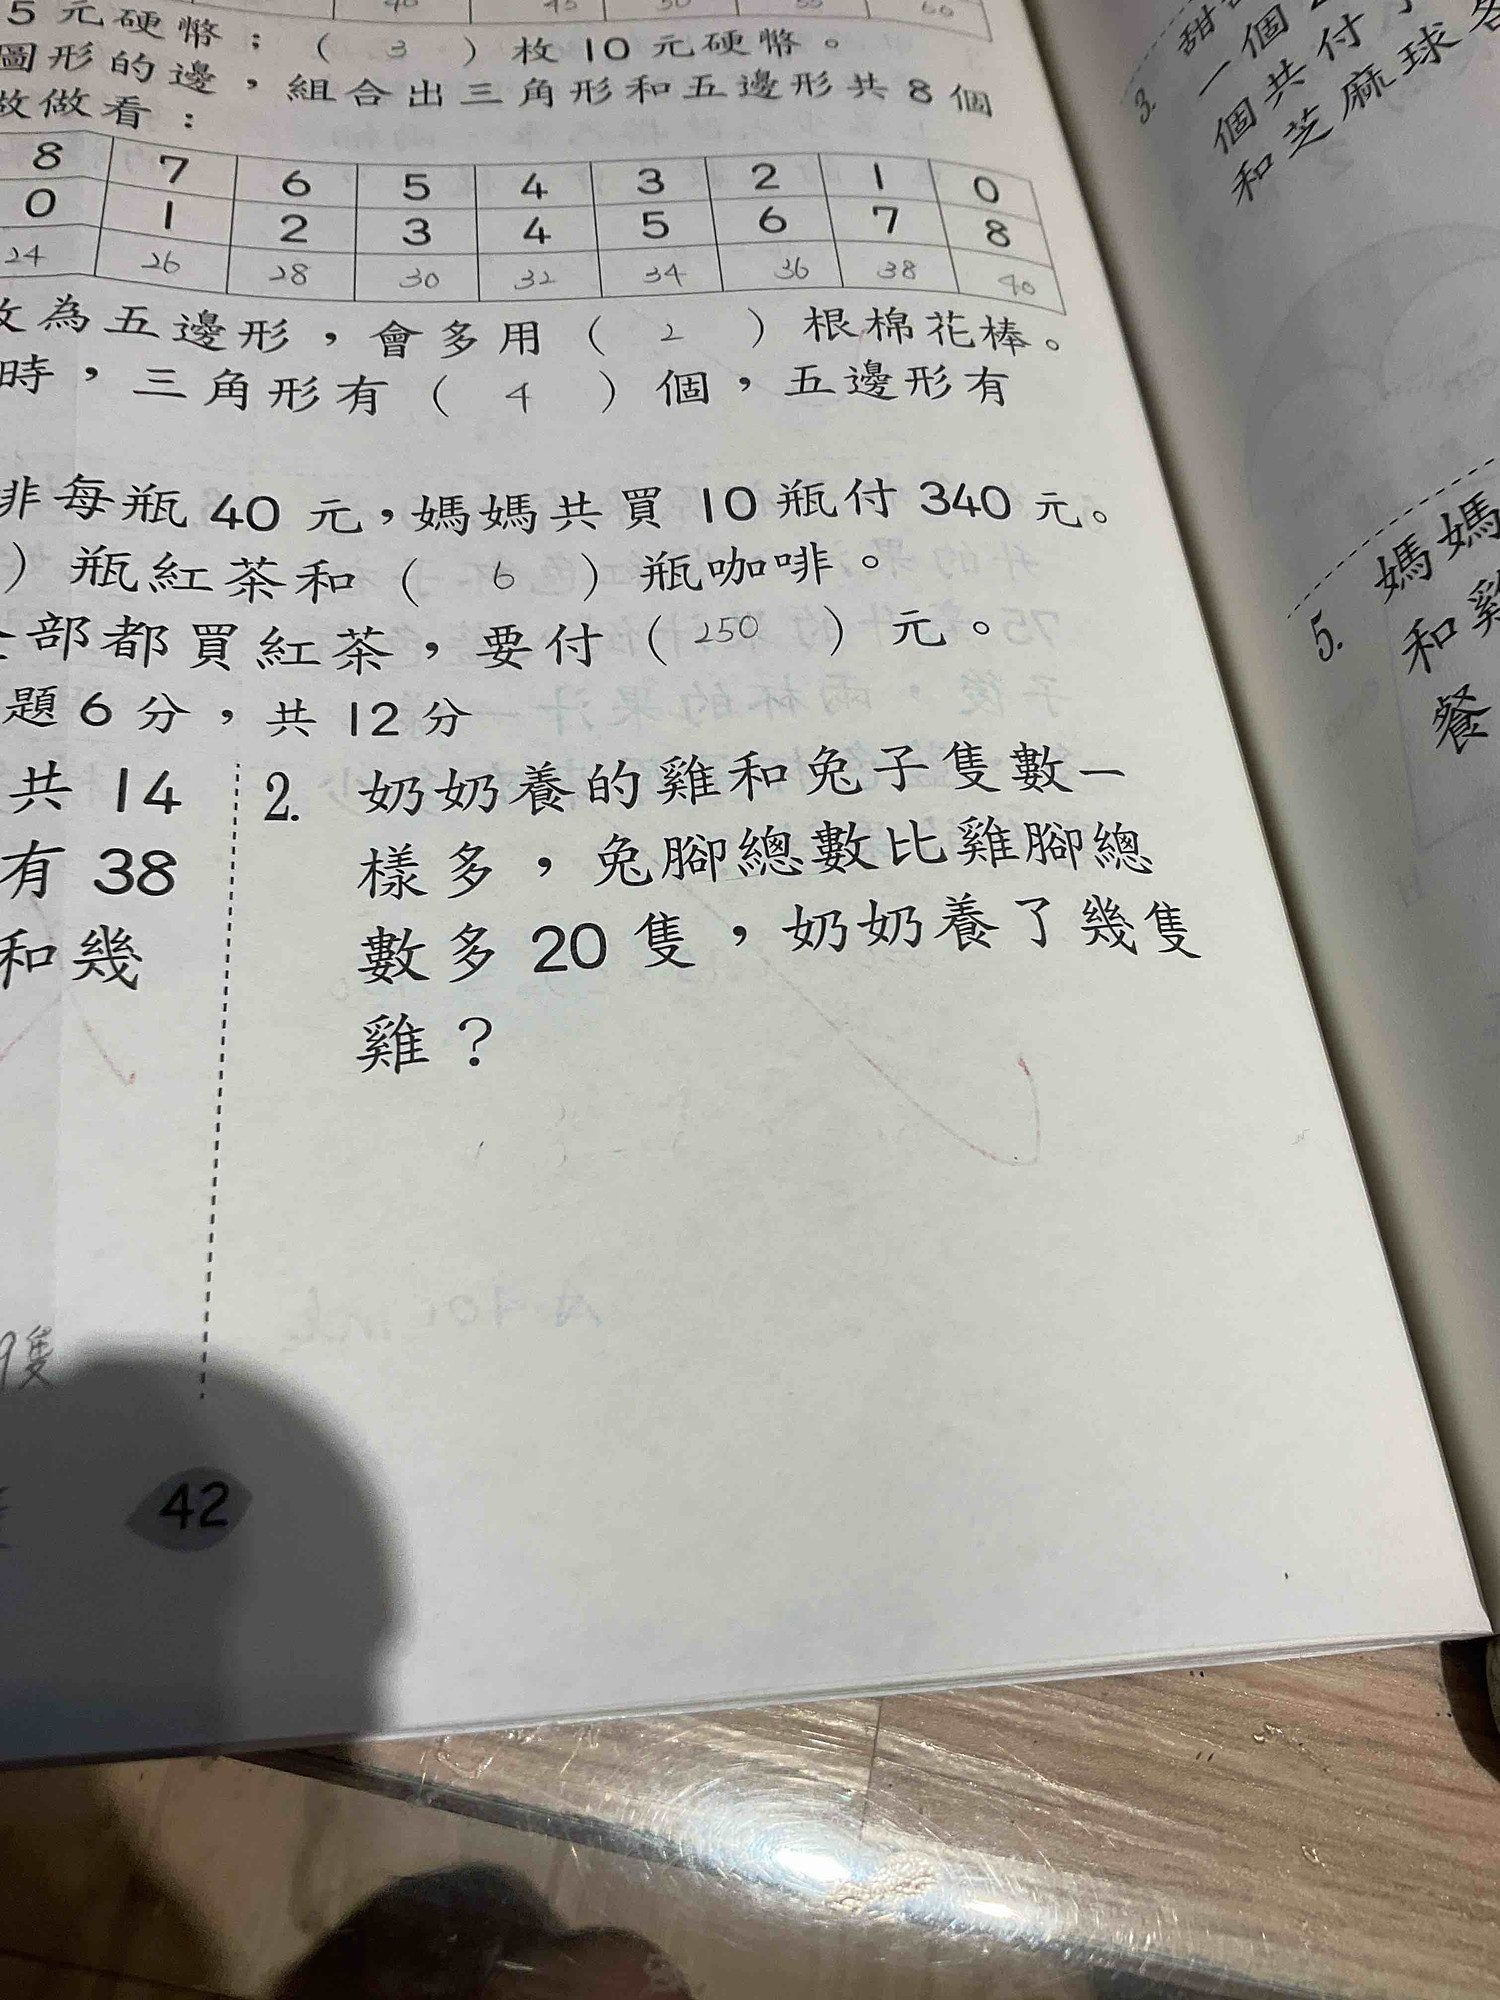 5元硬幣;( 3 )枚10元硬幣。
圖形的邊,組合出三角形和五邊形共8個
做做看:
8 7 6 5 4 3 2 1 0
0 1 2 3 4 5 6 7 8
24 26 28 30 32 34 36 38 40
為五邊形,會多用( 2 )根棉花棒。
時,三角形有( 4 )個,五邊形有
啡每瓶40元,媽媽共買10瓶付340元。
)瓶紅茶和( 6 )瓶咖啡。
部都買紅茶,要付(250)元。
題6分,共12分
共14
有38
和幾
9隻
2. 奶奶養的雞和兔子隻數一
樣多,兔腳總數比雞腳總
數多20隻,奶奶養了幾隻
雞?
42
3. 甜
一個
個共付
和芝麻球
5. 媽媽
和雞
餐